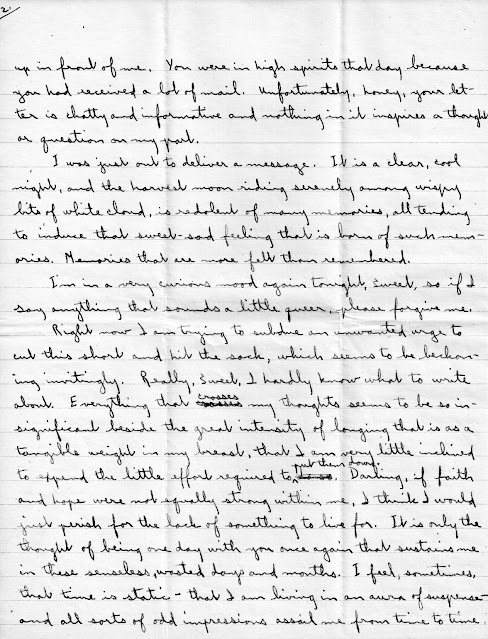 2.
up in front of me. You were in high spirits that day because
you had received a lot of mail. Unfortunately, honey, your let-
ter is chatty and informative and nothing in it inspires a thought
or question on my part.
I was just out to deliver a message. It is a clear, cool
night, and the harvest moon riding serenely among wispy
bits of white cloud, is redolent of many memories, all tending
to induce that sweet-sad feeling that is born of such mem-
ories. Memories that are more felt than remembered.
I'm in a very curious mood again tonight, sweet, so if I
say anything that sounds a little queer, please forgive me.
Right now I am trying to subdue an unwanted urge to
cut this short and hit the sack, which seems to be beckon-
ing invitingly. Really, sweet, I hardly know what to write
about. Everything that crosses my thoughts seems to be so in-
significant beside the great intensity of longing that is as a
tangible weight in my breast, that I am very little inclined
to expend the little effort required to put them down. Darling, if faith
and hope were not equally strong within me, I think I would
just perish for the lack of something to live for. It is only the
thought of being one day with you once again that sustains me
in these senseless, wasted days and months. I feel, sometimes,
that time is static - that I am living in an aura of suspense -
and all sorts of odd impressions assail me from time to time.